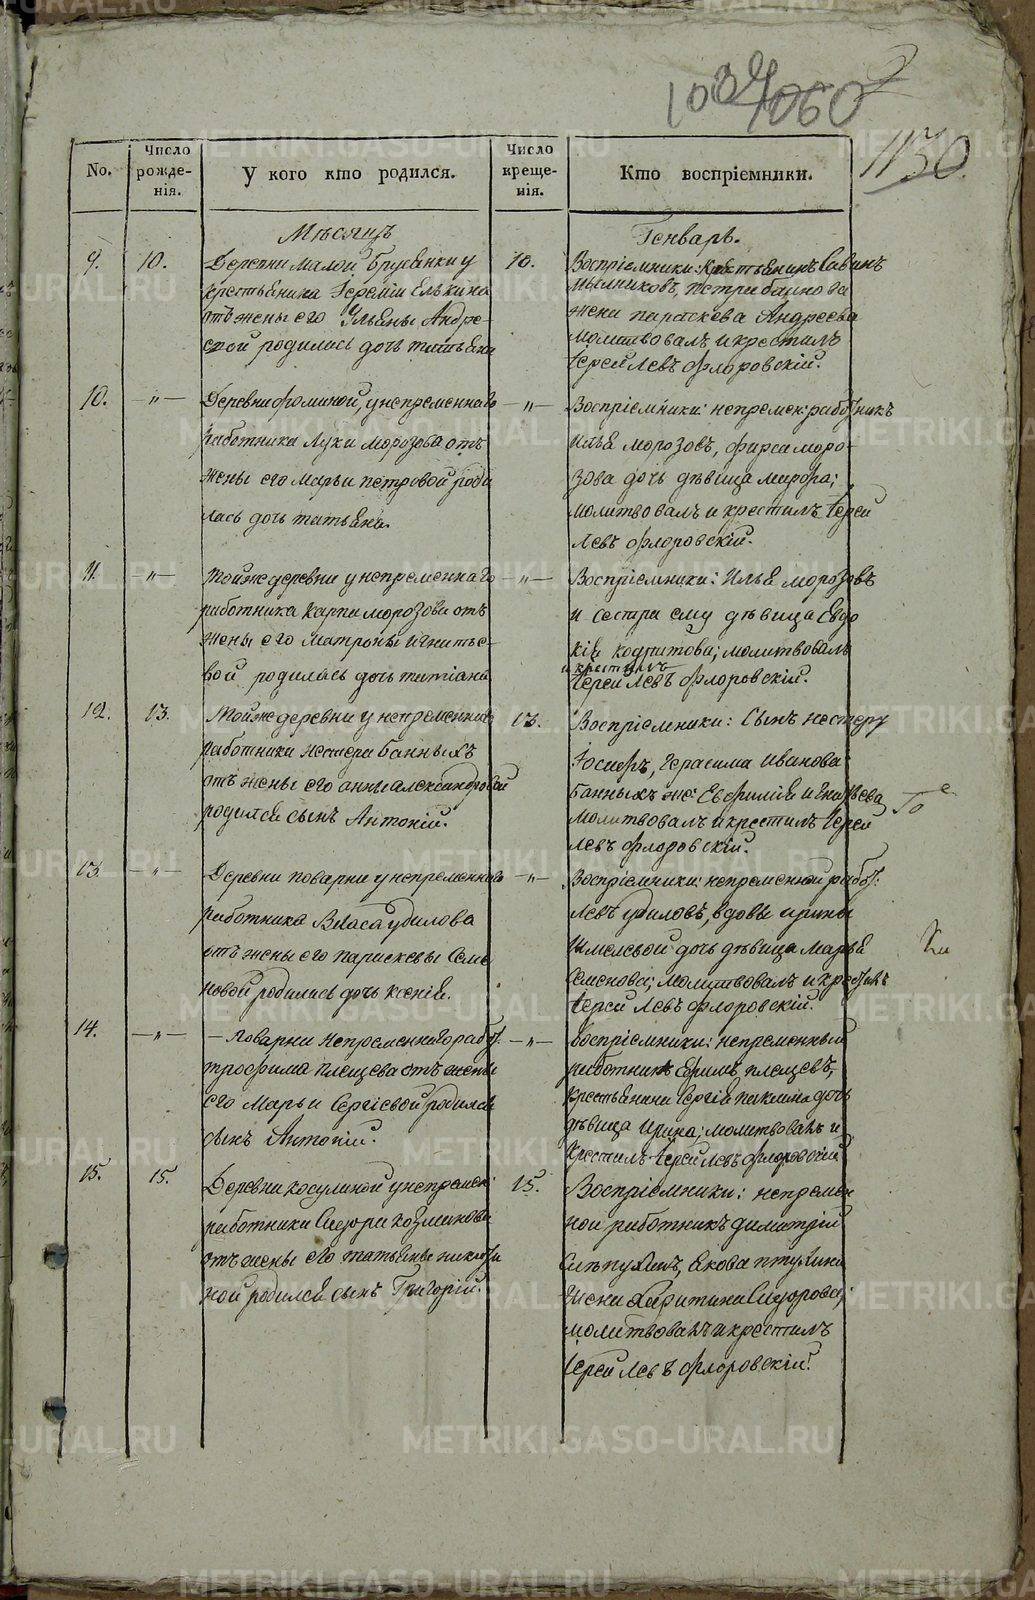 1060
1150.
No.
Число рожденія.
У кого кто родился.
Число крещенія.
Кто воспріемники.
Мѣсяцъ
Генварь.
9.
10.
Деревни малой Брусянки у
крестьянина Іереміи Елькина
отъ жены его Ульяны Андре-
евой родилась дочь татьяна
10.
Воспріемники: крестьянинъ Савинъ
жена параскева Андреева
молитвовалъ и крестилъ
Іерей Левъ Флоровскій.
10.
—"—
Деревни фоминой, у непременнаго
работника Луки морозова отъ
жены его марьи петровой роди
лась дочь татьяна.
—"—
Воспріемники: непремен: работникъ
Илья морозовъ, фирса моро-
зова дочь дѣвица марфа;
молитвовалъ и крестилъ Іерей
Левъ Флоровскій.
11.
—"—
Тойже деревни у непременнаго
работника Карпа морозова отъ
жены его матроны игнатье-
вой родилась дочь татіана
—"—
Воспріемники: Илья морозовъ
и сестра ему дѣвица Евдо
кія кодратова; молитвовалъ
и крестилъ
Іерей Левъ Флоровскій.
12.
13.
Тойже деревни у непременнаго
работника нестера Банныхъ
отъ жены его анны александровой
родился сынъ Антоній.
13.
Воспріемники: Сынъ нестеру
Іосифъ, Герасима иванова
Банныхъ же: Евфимія игнатьева
молитвовалъ и крестилъ Іерей
Левъ Флоровскій.
13
—"—
Деревни поварни у непременнаго
работника Власа удилова
отъ жены его параскевы Семе
новой родилась дочь ксенія.
—"—
Воспріемники: непременной работ:
Левъ удиловъ, вдовы ирины
дочь дѣвица марья
Семенова; молитвовалъ и крестилъ
Іерей Левъ Флоровскій.
14.
—"—
— Поварни непременнаго работ:
трофима плещева отъ жены
его Марьи Сергіевой родился
сынъ Антоній.
—"—
Воспріемники: непременный
работникъ Ефимъ плещевъ,
крестьянина Сергія пакина дочь
дѣвица ирина; молитвовалъ и
крестилъ Іерей Левъ Флоровскій
15.
15.
Деревни косулиной у непремен:
работника Сидора козманова
отъ жены его татьяны никити
ной родился сынъ Григорій.
15.
Воспріемники: непремен
ной работникъ димитрій
Слѣпухинъ, Якова птухина
жена Харитина Сидорова;
молитвовалъ и крестилъ
Іерей Левъ Флоровскій.
METRIKI.GASO-URAL.RU